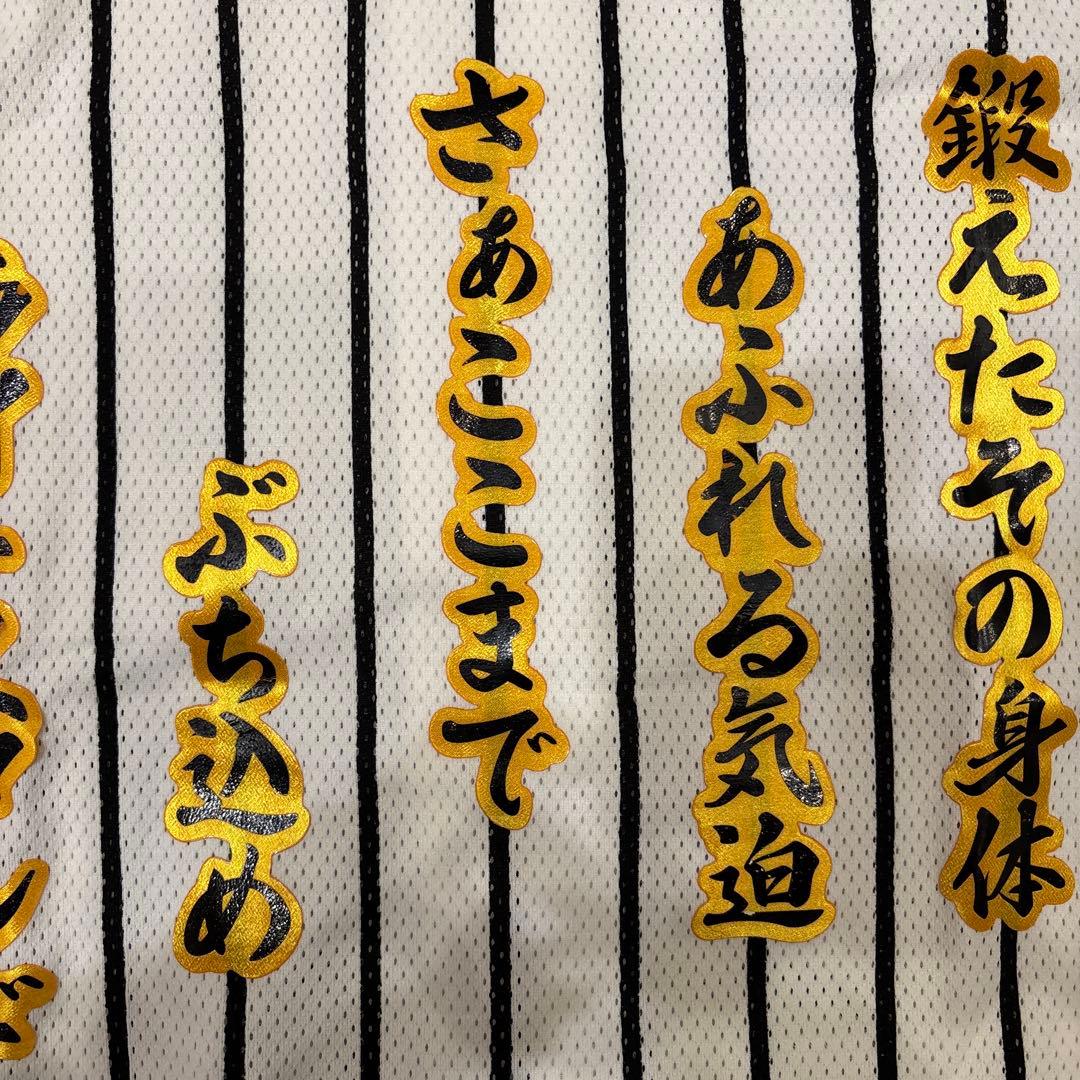 鍛えたその身体
あふれる気迫
さぁここまで
ぶち込め